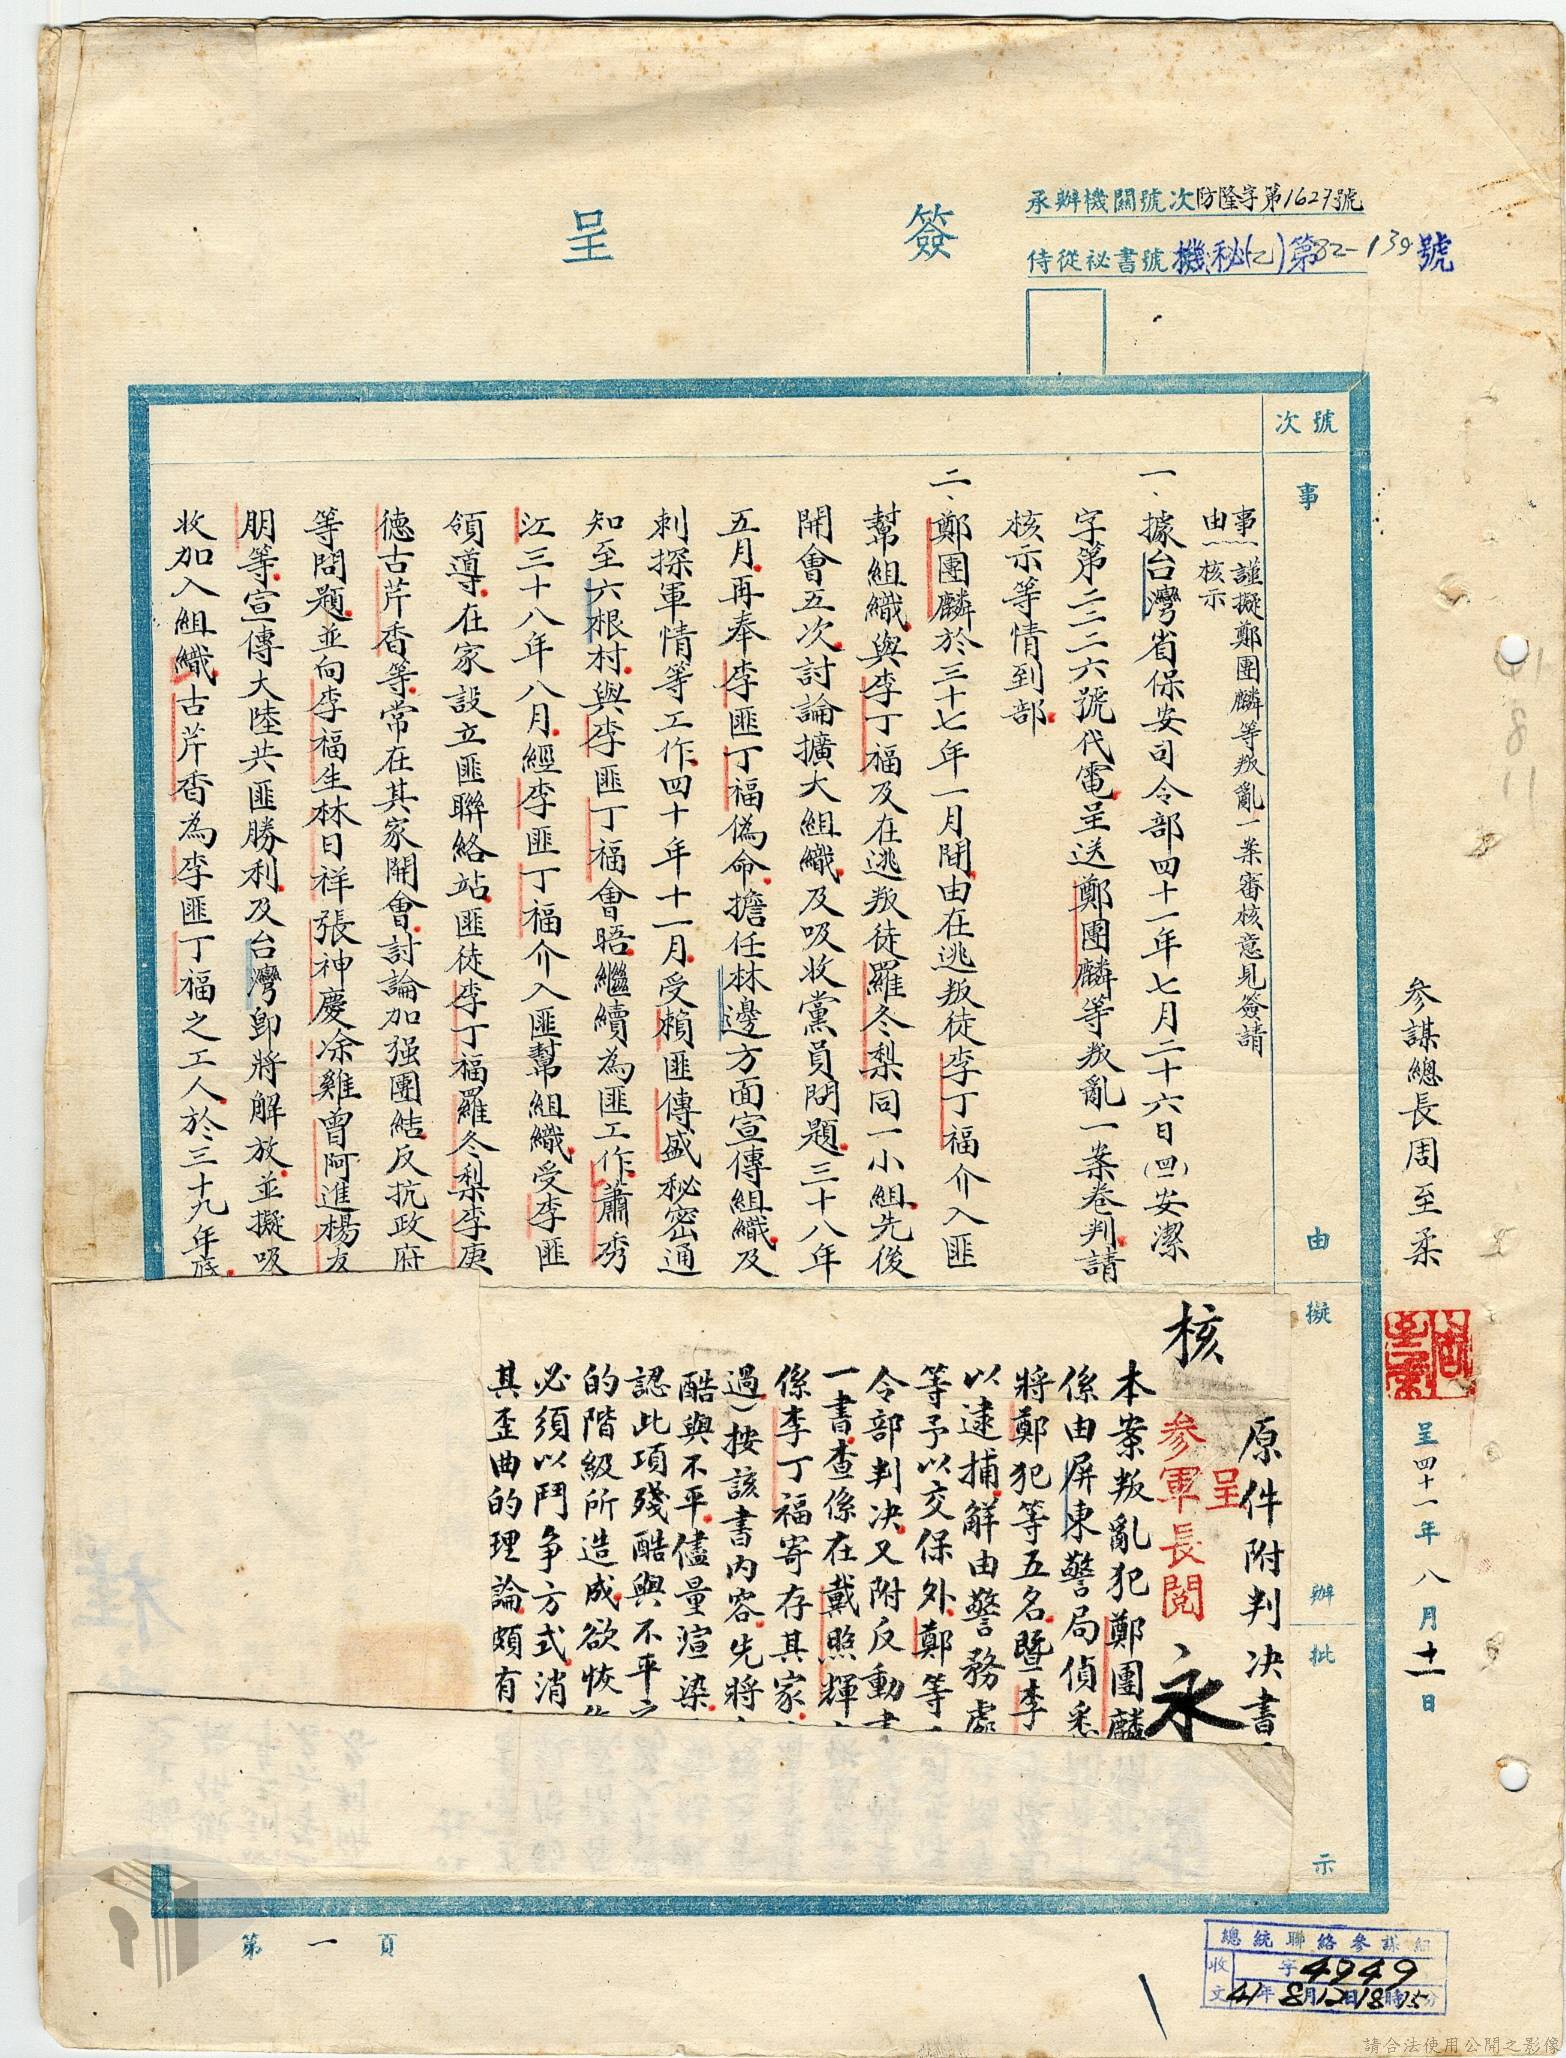 簽呈
承辦機關號次防隆字第1627號
侍從祕書號機秘(乙)第82-139號
號次
事由
擬辦
批示
參謀總長周至柔
呈四十一年八月十一日
事由︱謹擬鄭團麟等叛亂一案審核意見簽請
核示
一、據台灣省保安司令部四十一年七月二十六日(四一)安潔
字第二二二六號代電呈送鄭團麟等叛亂一案卷判請
核示等情到部
二、鄭團麟於三十七年一月間由在逃叛徒李丁福介入匪
幫組織與李丁福及在逃叛徒羅冬梨同一小組先後
開會五次討論擴大組織及吸收黨員問題三十八年
五月再奉李匪丁福偽命擔任林邊方面宣傳組織及
刺探軍情等工作四十年十一月受賴匪傳盛秘密通
知至六根村與李匪丁福會晤繼續為匪工作蕭秀
江三十八年八月經李匪丁福介入匪幫組織受李匪
領導在家設立匪聯絡站匪徒李丁福羅冬梨李庚
德古芹香等常在其家開會討論加强團結反抗政府
等問題並向李福生林日祥張神慶凃雞曾阿進楊友
朋等宣傳大陸共匪勝利及台灣即將解放並擬吸
收加入組織古芹香為李匪丁福之工人於三十九年底
原件附判决書
核
呈
參軍長閱
永
本案叛亂犯鄭團麟
係由屏東警局偵悉
將鄭犯等五名暨李
以逮捕解由警務處
等予以交保外鄭等
令部判决又附反動書
一書查係在戴照輝
係李丁福寄存其家
過)按該書內容先將
酷與不平儘量渲染
認此項殘酷與不平
的階級所造成欲恢
必須以鬥爭方式消
其歪曲的理論頗有
第一頁
總統聯絡參謀組
收文 字4949
41年8月12日18時15分
請合法使用公開之影像